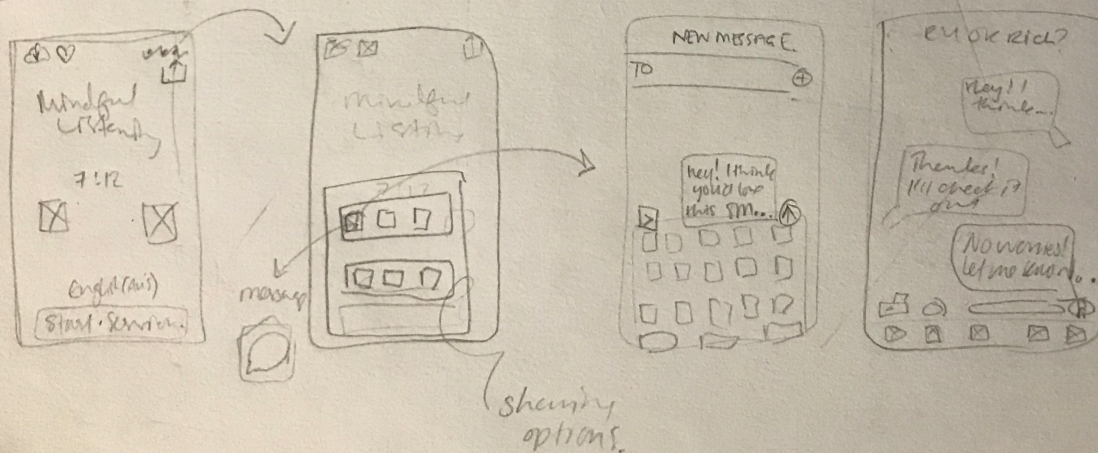 Mindful
Listening
7:12
English (Aus)
Start Session.
Mindful
Listening
7:12
message
sharing
options.
NEW MESSAGE
TO
hey! I think
you'd love
this SM...
RICH?
Hey! I
think...
Thanks!
I'll check it
out
No worries!
let me know...